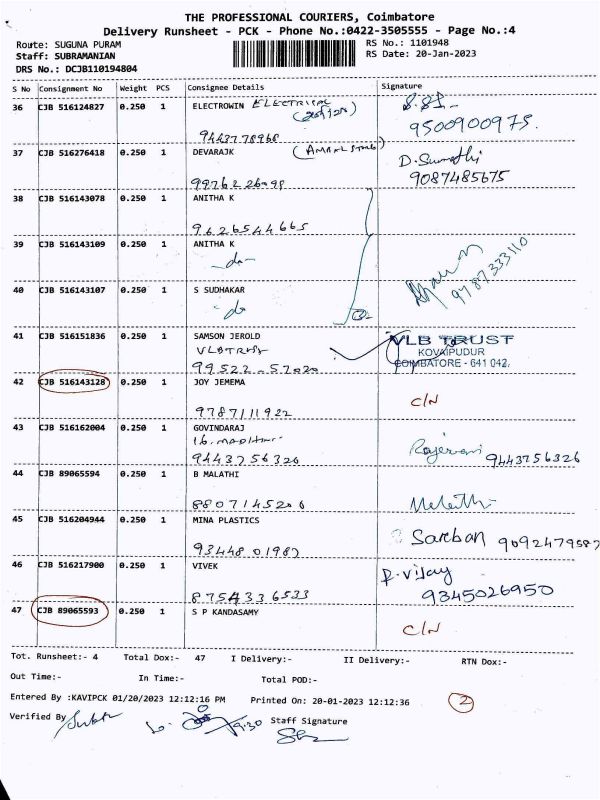 THE PROFESSIONAL COURIERS, Coimbatore
Delivery Runsheet - PCK - Phone No.:0422-3505555 - Page No.:4
Route: SUGUNA PURAM RS No.: 1101948
Staff: SUBRAMANIAN RS Date: 20-Jan-2023
DRS No.: DCJB110194804
S No Consignment No Weight PCS Consignee Details Signature
36 CJB 516124827 0.250 1 ELECTROWIN ELECTRICAL
9500900975.
9443778968
37 CJB 516276418 0.250 1 DEVARAJK
D. Sumathi
9976226098 9087485675
38 CJB 516143078 0.250 1 ANITHA K
9626544665
39 CJB 516143109 0.250 1 ANITHA K
-do- 9787333110
40 CJB 516143107 0.250 1 S SUDHAKAR
do
41 CJB 516151836 0.250 1 SAMSON JEROLD VLB TRUST
VLB TRUST KOVAIPUDUR
99522-57020 COIMBATORE - 641 042.
42 CJB 516143128 0.250 1 JOY JEMEMA C/N
9787111922
43 CJB 516162004 0.250 1 GOVINDARAJ
9443756326 9443756326
44 CJB 89065594 0.250 1 B MALATHI
8807145206 Malathi
45 CJB 516204944 0.250 1 MINA PLASTICS
93448 01987 Sarban 9092479587
46 CJB 516217900 0.250 1 VIVEK R. Vijay
8754336533 9345026950
47 CJB 89065593 0.250 1 S P KANDASAMY
C/N
Tot. Runsheet:- 4 Total Dox:- 47 I Delivery:- II Delivery:- RTN Dox:-
Out Time:- In Time:- Total POD:-
Entered By :KAVIPCK 01/20/2023 12:12:16 PM Printed On: 20-01-2023 12:12:36 2
Verified By Staff Signature